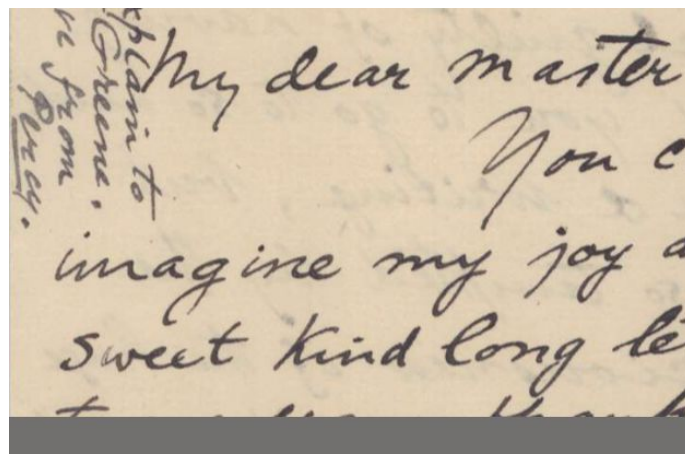 My dear master
You c
imagine my joy a
sweet kind long le
xplain to
Greene.
from
Percy.